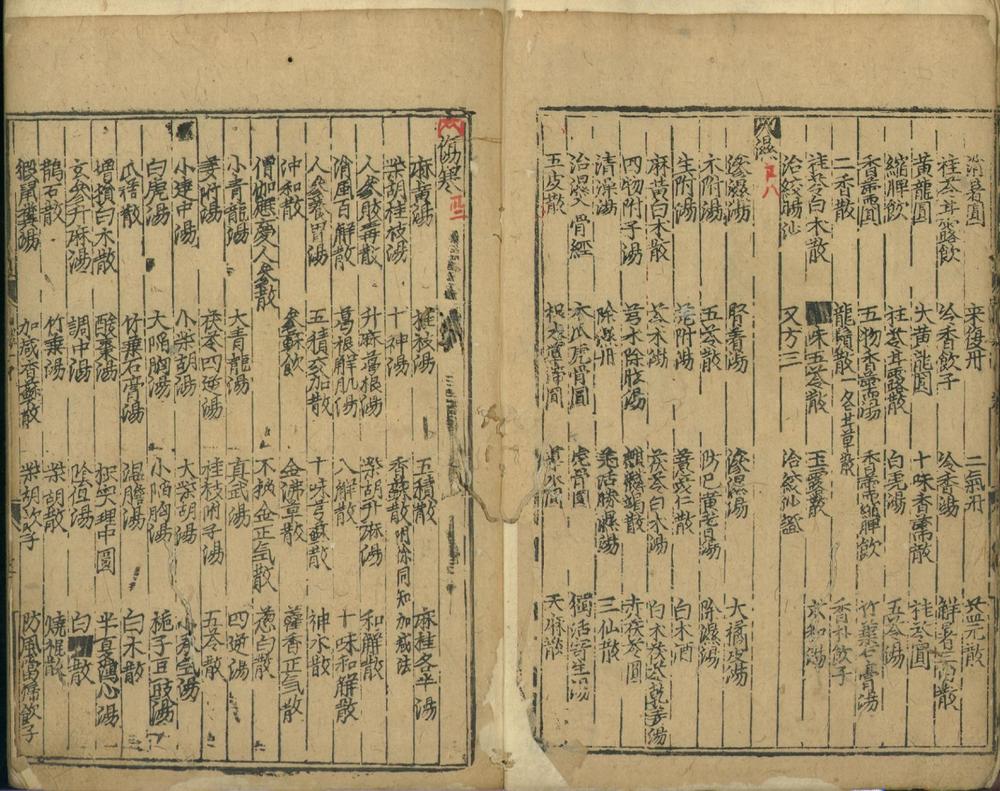 消暑圓 來復丹 二氣丹 益元散
桂苓甘露飲 冷香飲子 冷香湯 解暑三白散
黃龍圓 大黃龍圓 十味香薷散 桂苓圓
縮脾飲 桂苓甘露散 白虎湯 五苓湯
香薷圓 五物香薷湯 香薷縮脾飲 竹葉石膏湯
二香散 龍鬚散 一名甘草散 香朴飲子
桂苓白朮散 味五苓散 玉露散 六和湯
治絞腸沙 又方三 治發沙證
濕 四八
滲濕湯 腎着湯 滲濕湯 大橘皮湯
朮附湯 五苓散 防己黃耆湯 除濕湯
生附湯 附湯 薏苡仁散 白朮酒
麻黃白朮散 苓朮湯 茯苓白朮湯 白朮茯苓乾姜湯
四物附子湯 芎朮除眩湯 麒麟竭散 赤茯苓圓
清燥湯 除濕丹 羌活勝濕湯 三仙散
治濕入骨經 木瓜虎骨圓 虎骨圓 獨活寄生湯
五皮散 圓 圓 天麻散
傷寒 四二
麻黃湯 桂枝湯 五積散 麻桂各半湯
柴胡桂枝湯 十神湯 香蘇散 附徐同知加減法
人參敗毒散 升麻葛根湯 柴胡升麻湯 和解散
消風百解散 葛根解肌湯 八解散 十味和解散
人參養胃湯 五積交加散 十味芎蘇散 神朮散
沖和散 參蘇飲 金沸草散 藿香正氣散
僧伽應夢人參散 不換金正气散 葱白散
小青龍湯 大青龍湯 真武湯 四逆湯
姜附湯 茯苓四逆湯 桂枝附子湯 五苓散
小建中湯 小柴胡湯 大柴胡湯 小承气湯
白虎湯 大陷胸湯 小陷胸湯 梔子豆豉湯
瓜蒂散 竹葉石膏湯 温膽湯 白朮散
增損白朮散 酸棗湯 枳實理中圓 半夏瀉心湯
玄參升麻湯 調中湯 陰旦湯 白散
鵲石散 竹葉湯 柴胡散 燒裩散
猳鼠糞湯 加減香蘇散 柴胡飲子 防風當歸飲子